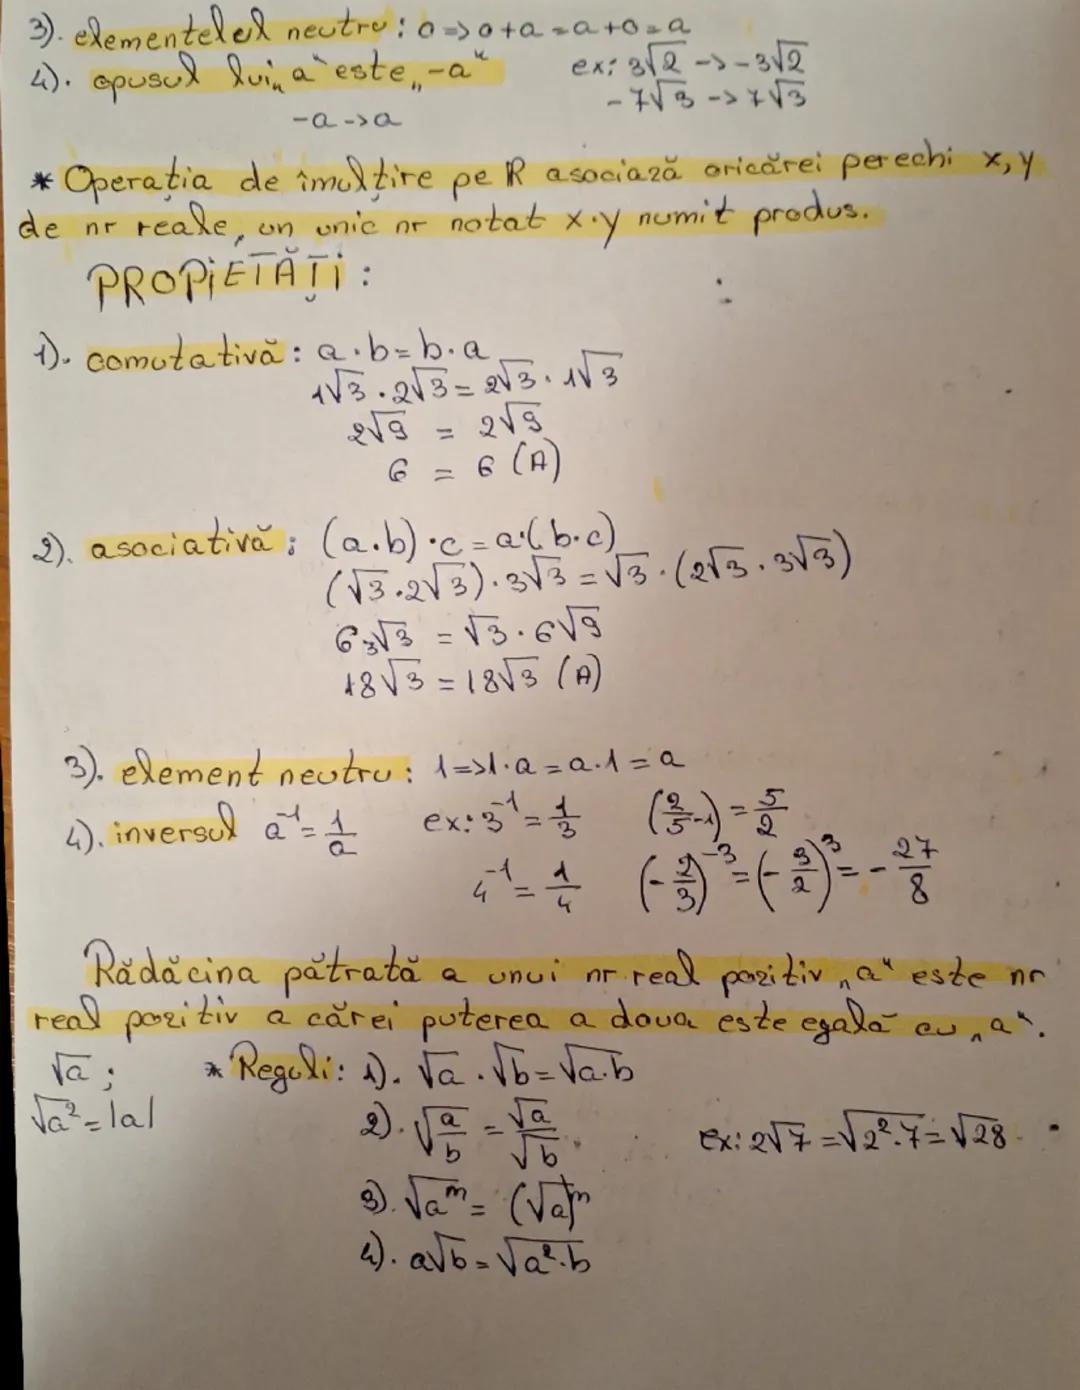 3). elementelel neutru: 0=>0+a=a+0=a
4). opusul lui „a" este „-a" ex: 3√2 -> -3√2
-a->a -7√3 -> 7√3
* Operația de îmulțire pe R asociază oricărei perechi x, y
de nr reale, un unic nr notat x·y numit produs.
PROPIETĂȚI:
1). comutativă: a·b=b·a
1√3·2√3=2√3·1√3
2√9 = 2√9
6 = 6 (A)
2). asociativă: (a·b)·c=a·(b·c)
(√3·2√3)·3√3=√3·(2√3·3√3)
6·3√3 = √3·6√9
18√3=18√3 (A)
3). element neutru: 1=>1·a=a·1=a
4). inversul a⁻¹=1/a ex: 3⁻¹=1/3 (2/5⁻¹)=5/2
4⁻¹=1/4 (-2/3)⁻³=(-3/2)³=-27/8
Rădăcina pătrată a unui nr. real pozitiv „a" este nr
real pozitiv a cărei puterea a doua este egală cu „a".
√a; * Reguli: 1). √a·√b=√a·b
√a²=|a| 2). √a/b=√a/√b ex: 2√7=√2²·7=√28
3). √aᵐ=(√a)ᵐ
4). a√b=√a²·b